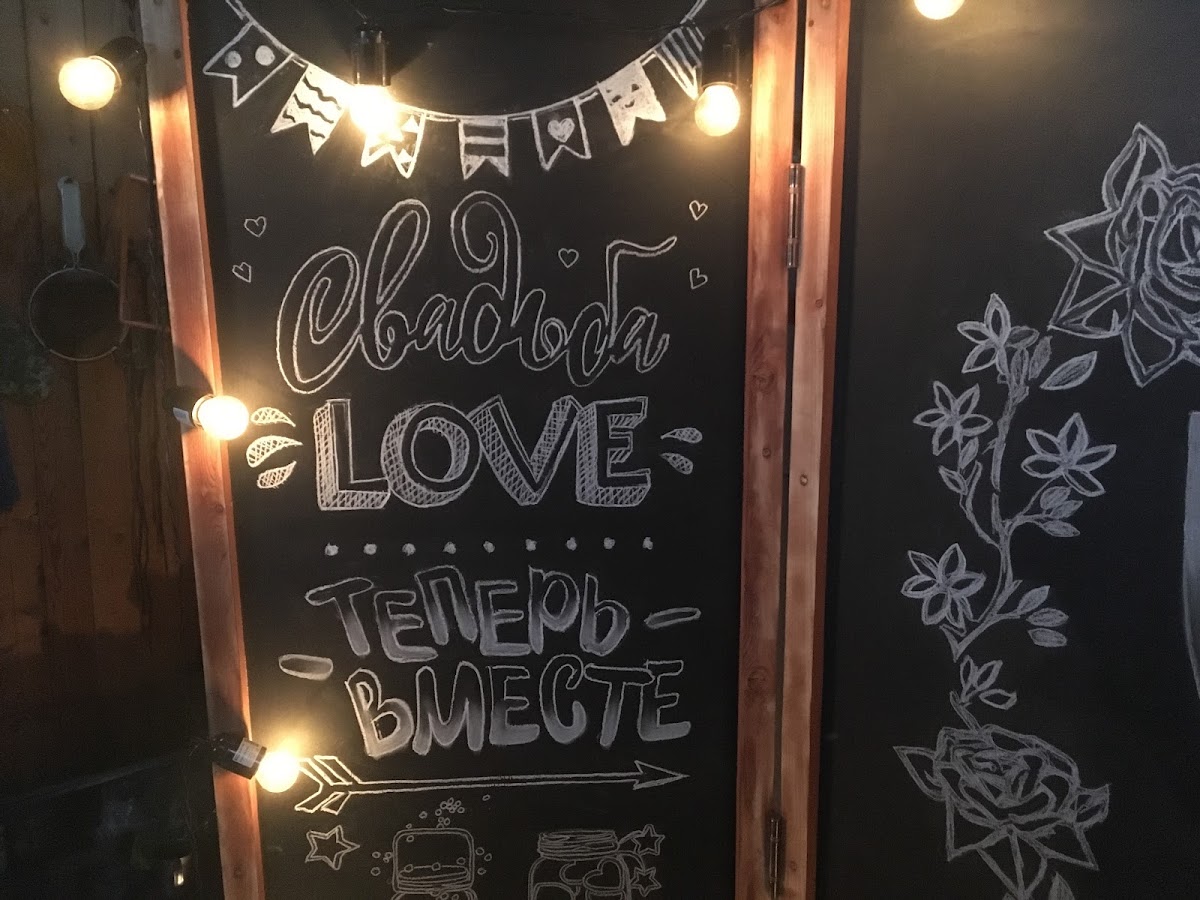 Свадьба
LOVE
ТЕПЕРЬ
ВМЕСТЕ